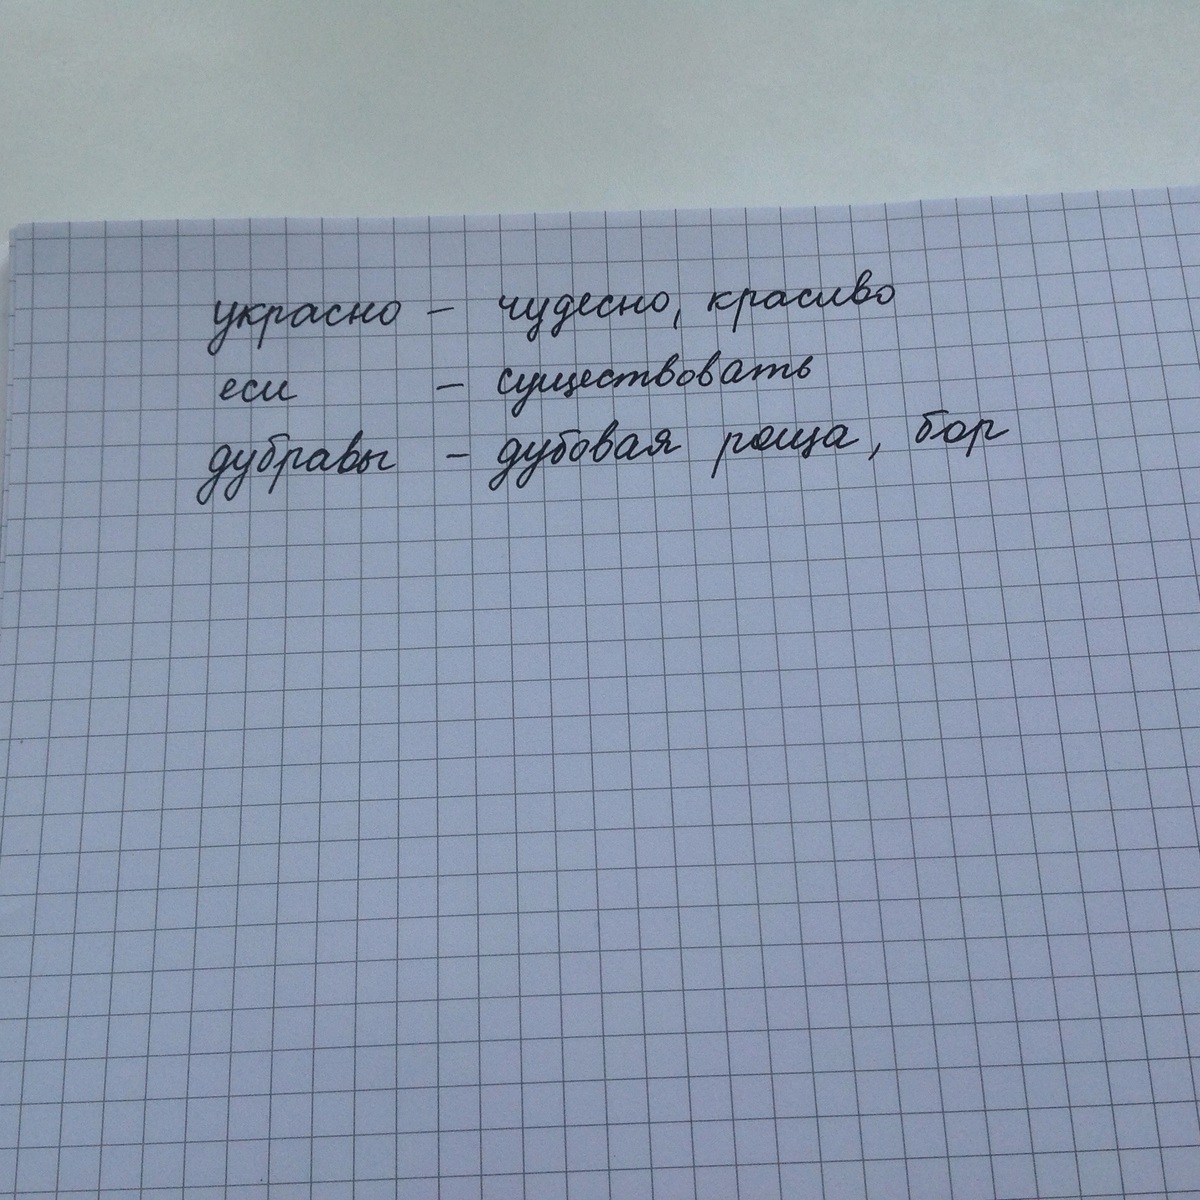 украсно – чудесно, красиво
еси – существовать
дубравы – дубовая роща, бор